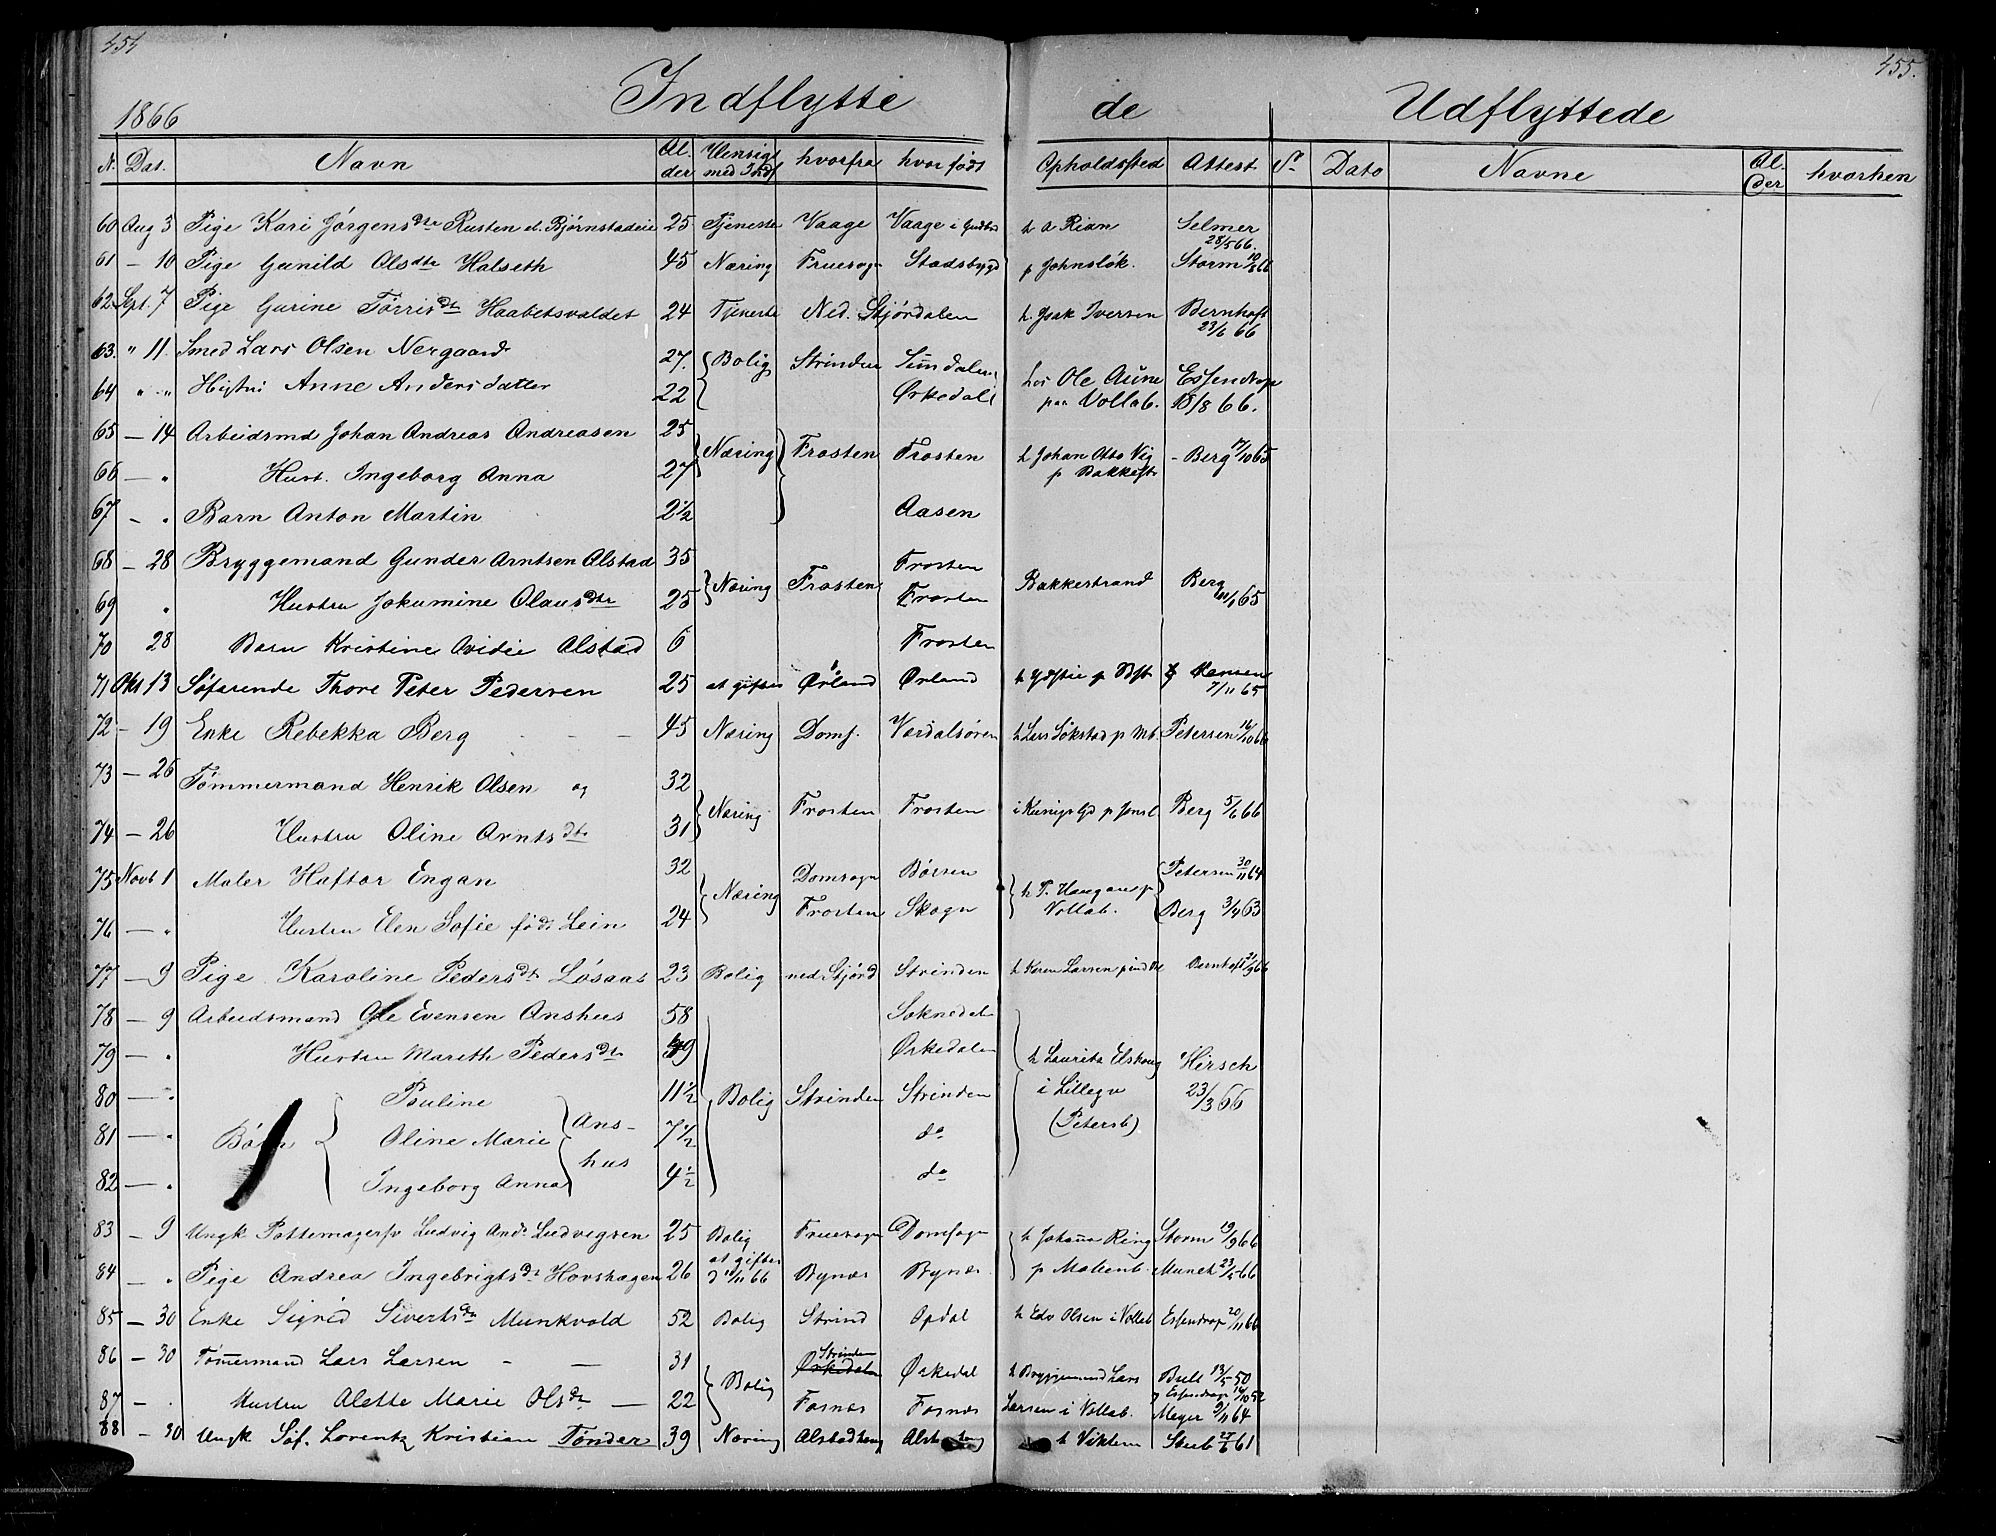 454
455.
Indflytte de Udflyttede
1866
N. Dat. Navn Al-der Hensigt med Indf hvorfra hvor født Opholdssted Attest Nr Dato Navne Al-der hvorhen
60 Aug 3 Pige Kari Jørgensdtr Rusten el. Bjørnstadeie 25 Tjeneste Vaage Vaage i Gudbd h A Rian Selmer 28/5 66.
61 — 10 Pige Gunild Olsdtr Halseth 45 Næring Fruesogn Stadsbygd p Johnsløk. Storm 10/8 66
62 Sept. 7 Pige Gurine Tørrisdtr Haabetsvaldet 24 Tjeneste Ned. Stjørdalen h. Isak Iversen Bernhoft 23/6 66
63. " 11. Smed Lars Olsen Nergaard 27. Bolig Strinden Surndalen hos Ole Aune Essendrop
64 " " Hustru Anne Andersdatter 22 Ørkedal paa Vollab. 18/8 66.
65 — 14 Arbeidsmd Johan Andreas Andreasen 25 Næring Frosten Frosten h Johan Otto Vig - Berg 17/10 65
66 — " Hust. Ingeborg Anna 27 p Bakkestr
67 - " Barn Anton Martin 2 1/2 Aasen
68 — 28 Bryggemand Gunder Arntsen Alstad 35 Næring Frosten Frosten Bakkestrand Berg 65
69 " Hustru Jokumine Olausdtr 25 Frosten
70 28 Barn Kristine Ovidie Alstad 6 Frosten
71 Okt 13 Søfarende Thore Peter Pedersen 25 at giftes Ørland Ørland Hansen 7/11 65
72 - 19 Enke Rebekka Berg - - 45 Næring Doms. Værdalsøren h Lars Sökstad p Mb. Petersen 16/10 66
73 — 26 Tømmermand Henrik Olsen og 32 Næring Frosten Frosten Berg 5/6 66
74 — 26 Hustru Oline Arntsdtr 31
75 Novb 1 Maler Haftor Engan 32 Næring Domsogn Børsen h T. Haugans p Petersen 30/11 64
76 — " Hustru Elen Sofie født Lein 24 Frosten Skogn Vollab. Berg 3/4 63
77 — 9 Pige Karoline Pedersdtr Løsaas 23 Bolig ned Stjørd Strinden h Karen Larsen Bernhoft 21/9 66
78 — 9 Arbeidsmand Ole Evensen Anshus 58 Soknedal
79 — " Hustru Marith Pedersdtr 49 Ørkedalen h Laurits Elskaug Hirsch
80 — " Børn Pauline Anshus 11 1/2 Bolig Strinden Strinden i Lillegv 23/3 66
81 — " Oline Marie 7 1/2 do (Petersb)
82 — " Ingeborg Anna 4 1/2 do
83 — 9 Ungk Pottemagersv Ludvig Andr Ludvigsen 25 Bolig Fruesogn Domsogn h Johanna Ring Storm 19/9 66
84 — " Pige Andrea Ingebrigtsdtr Hovshagen 26 at giftes Bynæs Bynæs p Mølienb. Munch 23/5 66
85 — 30 Enke Sigrid Sivertsdtr Munkvold 52 Bolig Strind Opdal h Edv Olsen i Vollab Essendrop 20/11 66
86 — 30 Tømmermand Lars Larsen - — 31 Bolig Strinden Ørkedalen Ørkedal h Bryggemand Lars Bull 13/5 50
87 - " Hustru Alette Marie Olsdtr — 22 Fosnæs Fosnæs Larsen i Vollab. Essendrop Meyer 9/11 64
88 - 30 Ungk Søf. Lorentz Kristian Tønder 39 Næring Alstadhaug h Viktem Steub 27/6 61